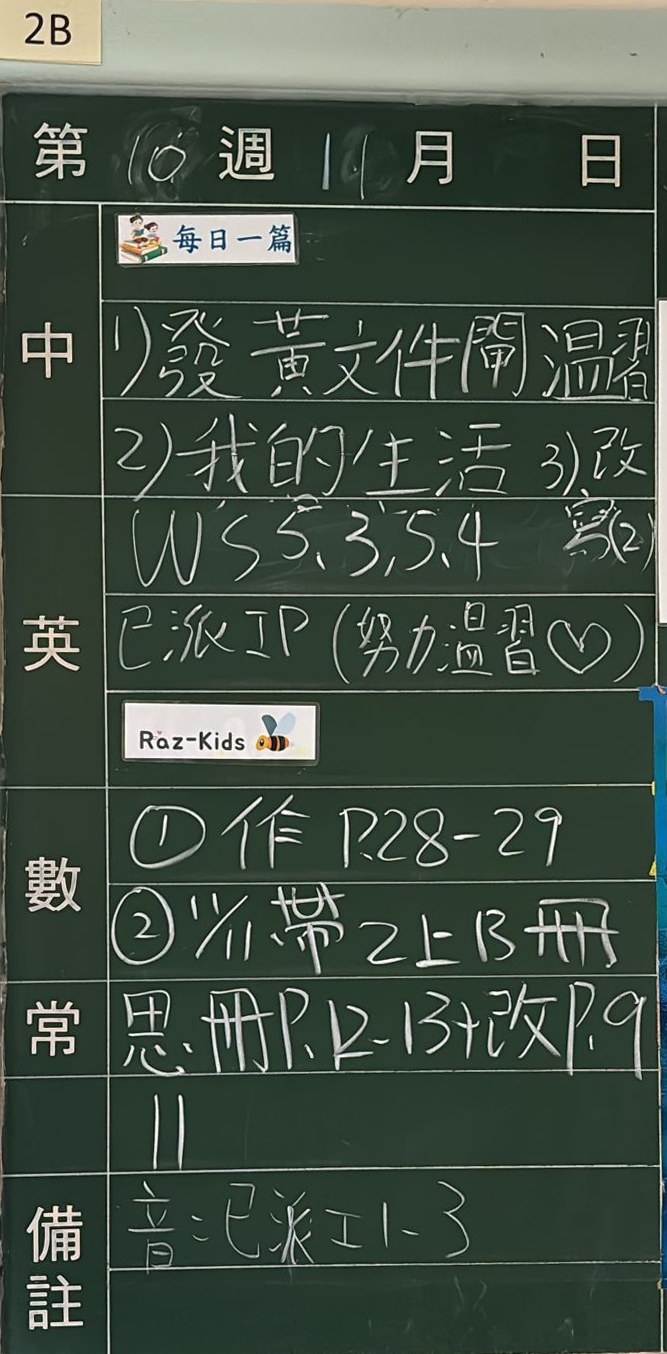 2B
第 10 週 11 月 日
中
每日一篇
1)發 黃文件 溫習
2)我的生活 3)改
寫(2)
英
WS 5.3,5.4
已派IP (努力溫習♡)
Raz-Kids
數
① 作 P.28-29
② 11/11 帶 2上B冊
常
思.冊P.12-13+改P.9
11
備註
音:已派工1-3